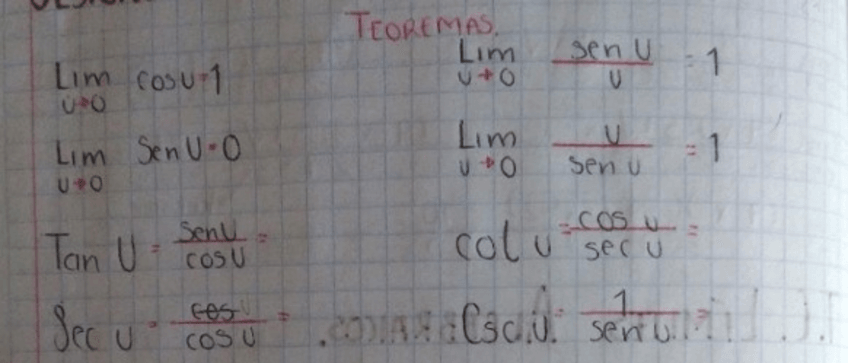 TEOREMAS.
Lim u→0 cos u = 1
Lim u→0 sen u / u = 1
Lim u→0 Sen u = 0
Lim u→0 u / sen u = 1
Tan U = sen u / cos u =
cot u = cos u / sec u =
Sec u = cos / cos u =
Csc u = 1 / sen u =